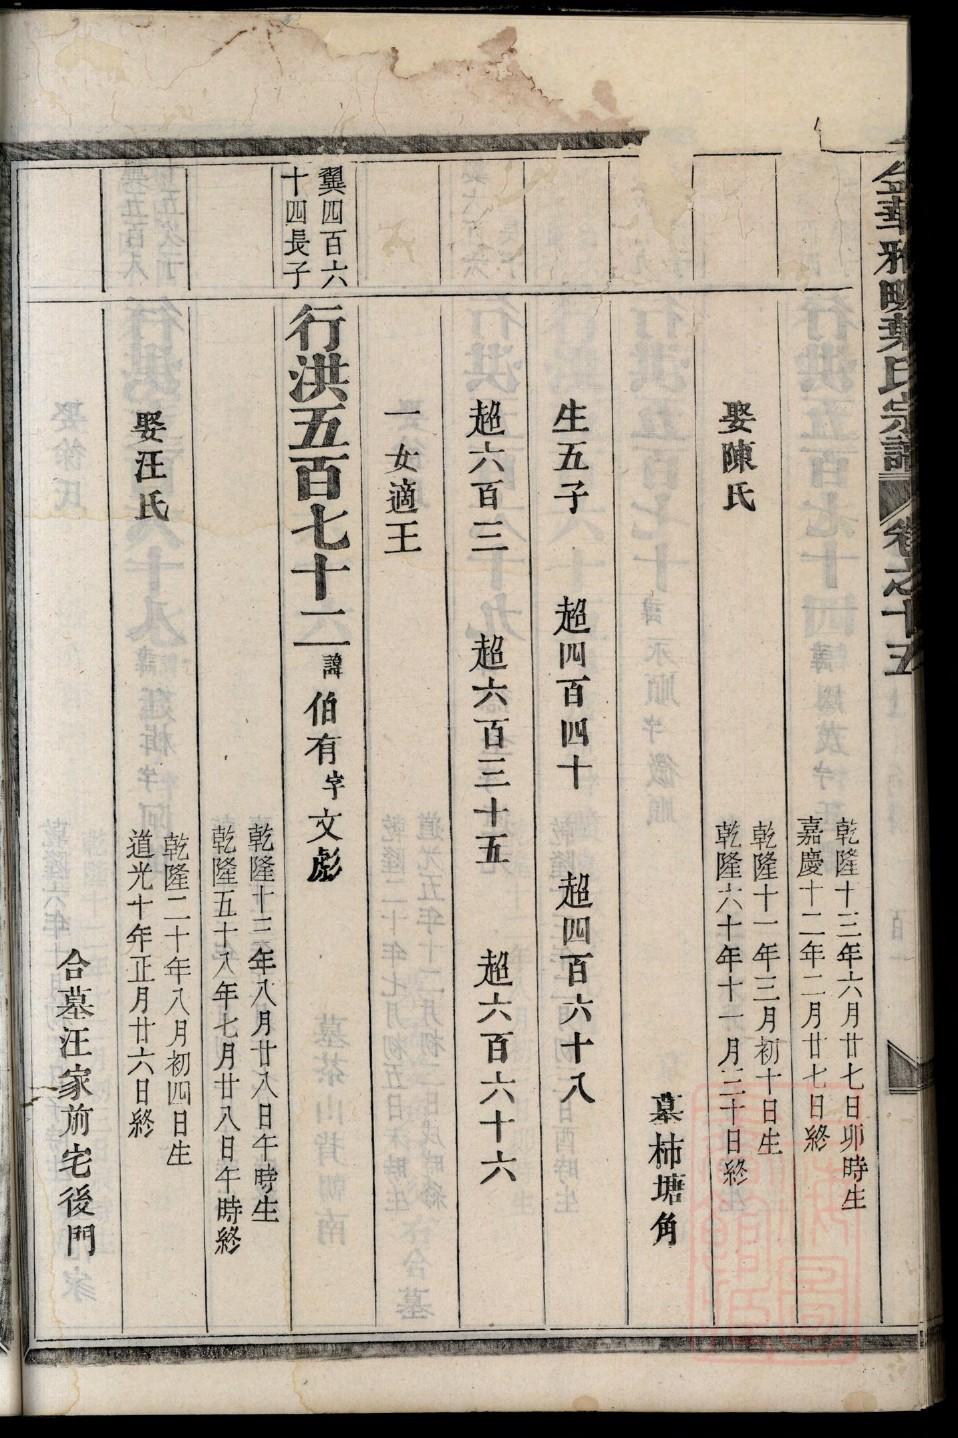 金華雅畈葉氏宗譜 卷之十五
乾隆十三年六月廿七日卯時生
嘉慶十二年二月廿七日終
乾隆十一年三月初十日生
娶陳氏
乾隆六十年十一月二十日終
墓柿塘角
生五子 超四百四十 超四百六十八
超六百三 超六百三十五 超六百六十六
一女適王
翼四百六
十四長子
行洪五百七十二 諱伯有字文彪
乾隆十三年八月廿八日午時生
乾隆五十八年七月廿八日午時終
乾隆二十年八月初四日生
娶汪氏
道光十年正月廿六日終
合墓汪家前宅後門